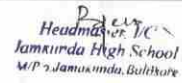 Headmaster I/C
Jamkunda High School
M/P > Jamakunda, Balasore